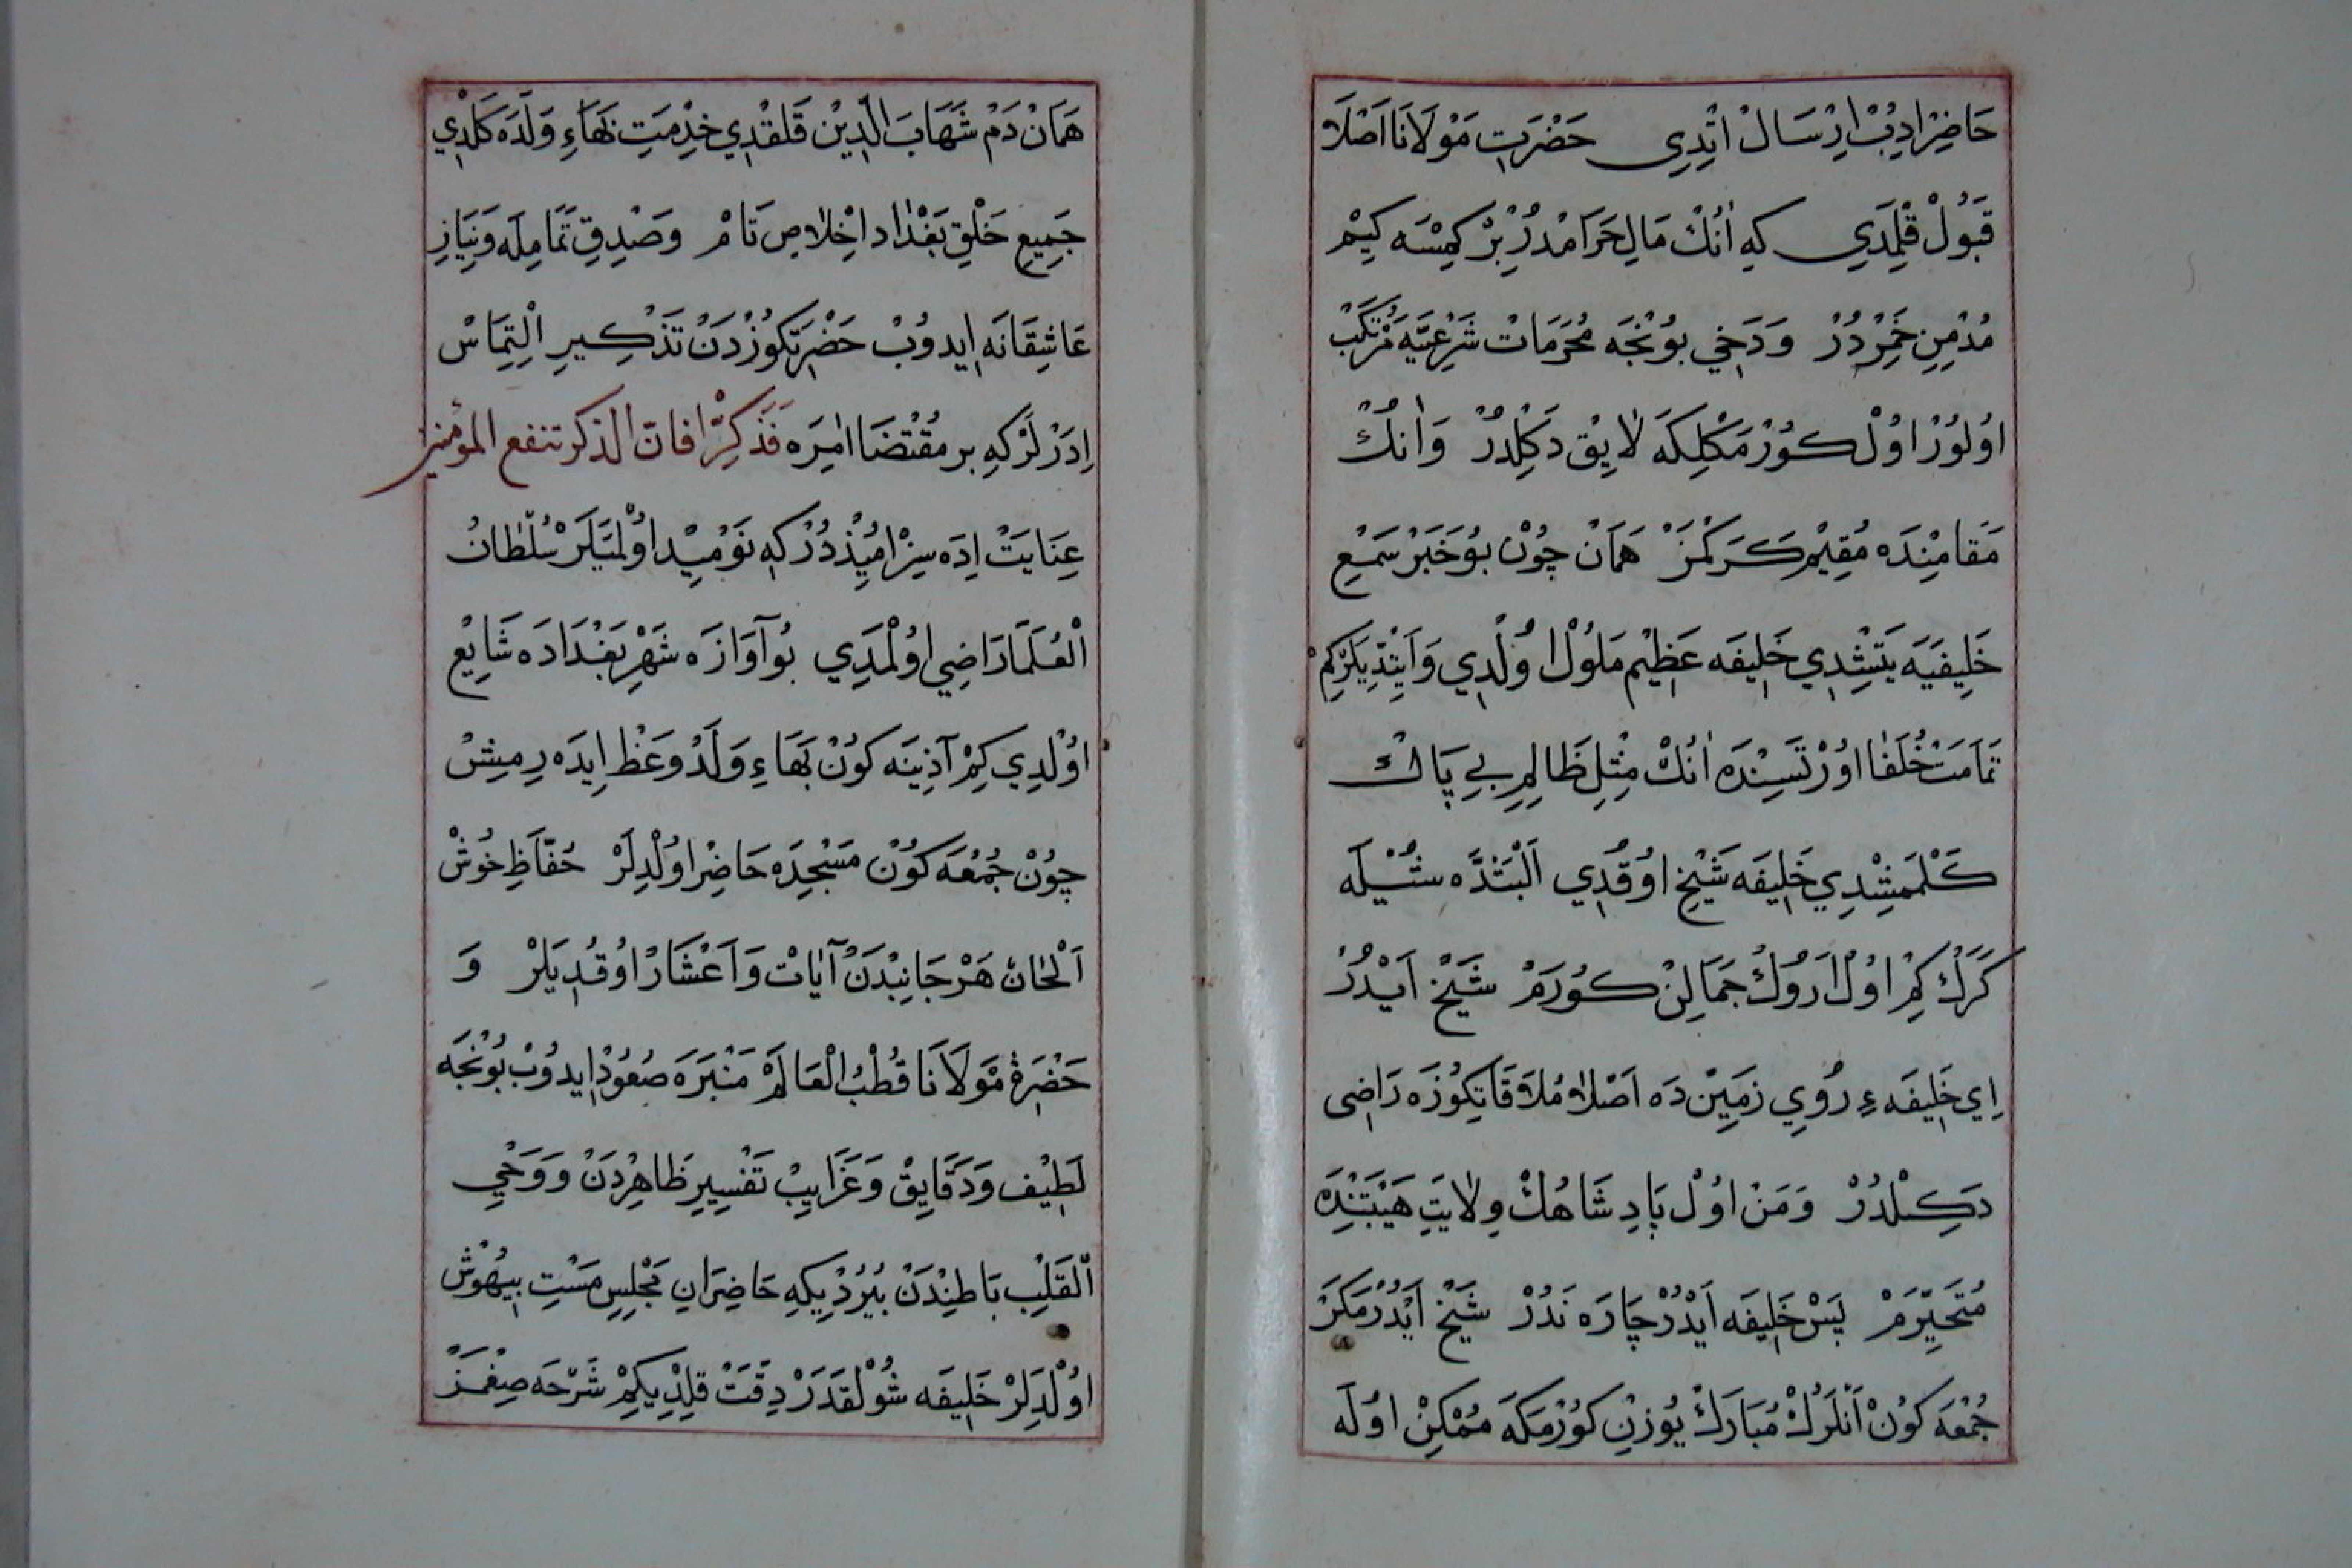 حَاضِرْ ادِيبْ اِرْسَالْ اتْدِی حَضْرَتِ مَوْلَانَا اَصْلَا
قَبُولْ قِلْمَدِی كِه اَنُكْ مَالِ حَرَامْدُرْ بِرْ كِمْسَه كِیمْ
مُدْمِنِ خَمِرْدُرْ وَدَخِي بُونْجَه مُحَرَمَاتْ شَرْعِيَّه مُرْتَكَبْ
اوُلوُرْ اوُلْ كوُرْمَكْلِكَه لَايِقْ دَكِلْدُرْ وَانُكْ
مَقَامِنْدَه مُقِيمْ كَرَكْمَزْ هَمَانْ چُونْ بُو خَبَرْ سَمْعِ
خَلِيفَيَه يَتِشْدِي خَلِيفَه عَظِيمْ مَلُولْ اوُلْدِي وَاَيِتْدِيلَرْكِمْ
تَمَامَتْ خُلَفَا اوُرْتَسِنْدَه اَنُكْ مِثْلِ ظَالِمِ بِي پَاكْ
كَلْمَمِشْدِي خَلِيفَه شَيْخِ اوُقُدِي اَلْبَتَّدَه شُيْلَه
كَرَكْ كِمْ اوُلْ اَرُوكْ جَمَالِنْ كوُرَمْ شَيْخْ اَيْدُرْ
اِي خَلِيفَه ءِ رُويِ زَمِينْ دَه اَصْلَا مُلَاقَاتِكُوزَه رَاضِی
دَكِلْدُرْ وَمَنْ اوُلْ پَادِشَاهُكْ وِلَايَتِ هَيْبَتِنْدَه
مُتَحَيِّرَمْ پَسْ خَلِيفَه اَيْدُرْ چَارَه نَدُرْ شَيْخْ اَيْدُرْ مَكَرْ
جُمْعَه كوُنْ اَنْلَرُكْ مُبَارَكْ يُوزِنْ كوُرْمَكَه مُمْكِنْ اوُلَه
هَمَانْ دَمْ شَهَابَ الدِّينْ قَلقْدِي خِدْمَتِ بَهَاءِ وَلَدَه كَلْدِي
جَمِيعِ خَلْقِ بَغْدَاد اِخْلَاصِ تَامْ وَصْدِقِ تَمَامِلَه وَنِيَازِ
عَاشِقَانَه اِيدوُبْ حَضْرَتِكوُزْدَنْ تَذْكِيرِ الْتِمَاسْ
اِدَرْلَرْكِه بر مُقْتَضَا اَمِرَه فَذَكِرّْ افان الذكر تنفع المؤمنين
عِنَايَتْ اِدَه سِزْ اُمِيذْ دُرْ كِه نَوْمِيدْ اوُلْمَيَلَرْ سُلْطَانُ
الْعُلَمَا رَاضِي اوُلْمَدِي بُو آوَازَه شَهْرِ بَغْدَادَه شَايِعْ
اوُلْدِي كِمْ آذِينَه كوُنْ بَهَاءِ وَلَدْ وَعَظْ اِيدَه رِمِشْ
چُونْ جُمْعَه كوُنْ مَسْجِدَه حَاضِرْ اوُلْدِلَرْ حُفَّاظِ خُوشْ
اَلْحَانْ هَرْ جَانِبْدَنْ آيَاتْ وَاَعْشَارْ اوُقُدِيلَرْ وَ
حَضْرَةِ مَوْلَانَا قُطْبُ الْعَالَمْ مَنْبَرَه صُعُوذْ اِيدوُبْ بُونْجَه
لَطِيْف وَدَقَايِقْ وَغَرَايِبْ تَفْسِيرِ ظَاهِرْدَنْ وَوَحْيِ
الْقَلِبْ بَاطِنْدَنْ بُيُرْدِيكِه حَاضِرَانِ مَجْلِسِ مَسْتِ بِيهُوشْ
اوُلْدِلَرْ خَلِيفَه شُولْقَدَرْ دِقَتْ قِلِدْيكِمْ شَرْحَه صِغْمَزْ